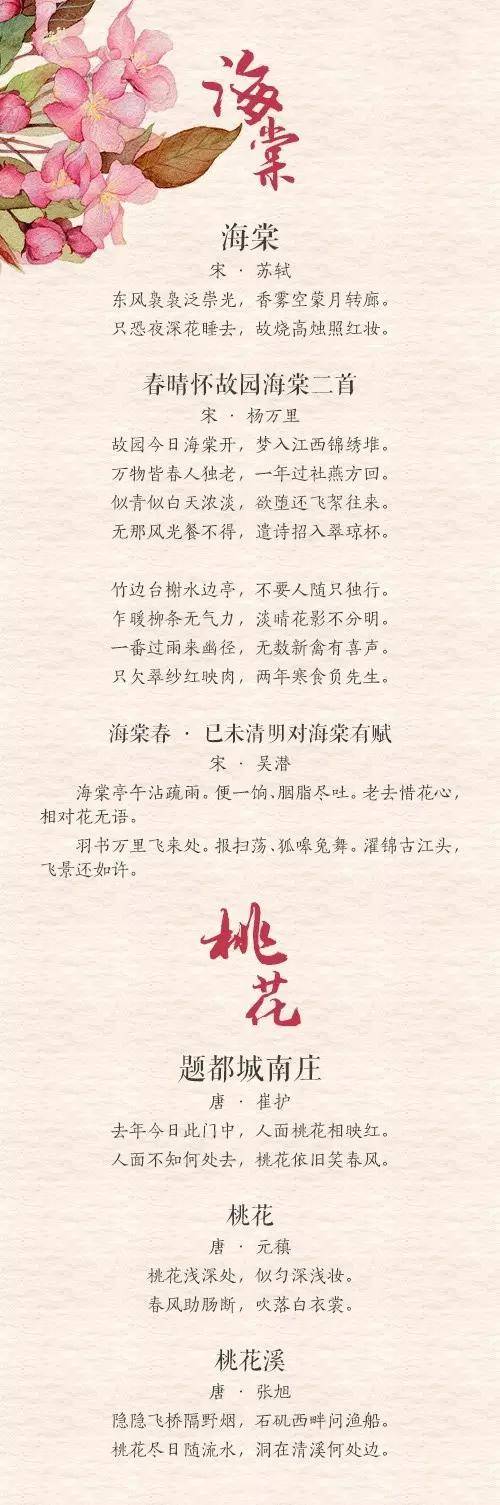 海棠
海棠
宋 · 苏轼
东风袅袅泛崇光，香雾空蒙月转廊。
只恐夜深花睡去，故烧高烛照红妆。
春晴怀故园海棠二首
宋 · 杨万里
故园今日海棠开，梦入江西锦绣堆。
万物皆春人独老，一年过社燕方回。
似青似白天浓淡，欲堕还飞絮往来。
无那风光餐不得，遣诗招入翠琼杯。
竹边台榭水边亭，不要人随只独行。
乍暖柳条无气力，淡晴花影不分明。
一番过雨来幽径，无数新禽有喜声。
只欠翠纱红映肉，两年寒食负先生。
海棠春 · 已未清明对海棠有赋
宋 · 吴潜
海棠亭午沾疏雨。便一饷、胭脂尽吐。老去惜花心，
相对花无语。
羽书万里飞来处。报扫荡、狐嗥兔舞。濯锦古江头，
飞景还如许。
桃花
题都城南庄
唐 · 崔护
去年今日此门中，人面桃花相映红。
人面不知何处去，桃花依旧笑春风。
桃花
唐 · 元稹
桃花浅深处，似匀深浅妆。
春风助肠断，吹落白衣裳。
桃花溪
唐 · 张旭
隐隐飞桥隔野烟，石矶西畔问渔船。
桃花尽日随流水，洞在清溪何处边。